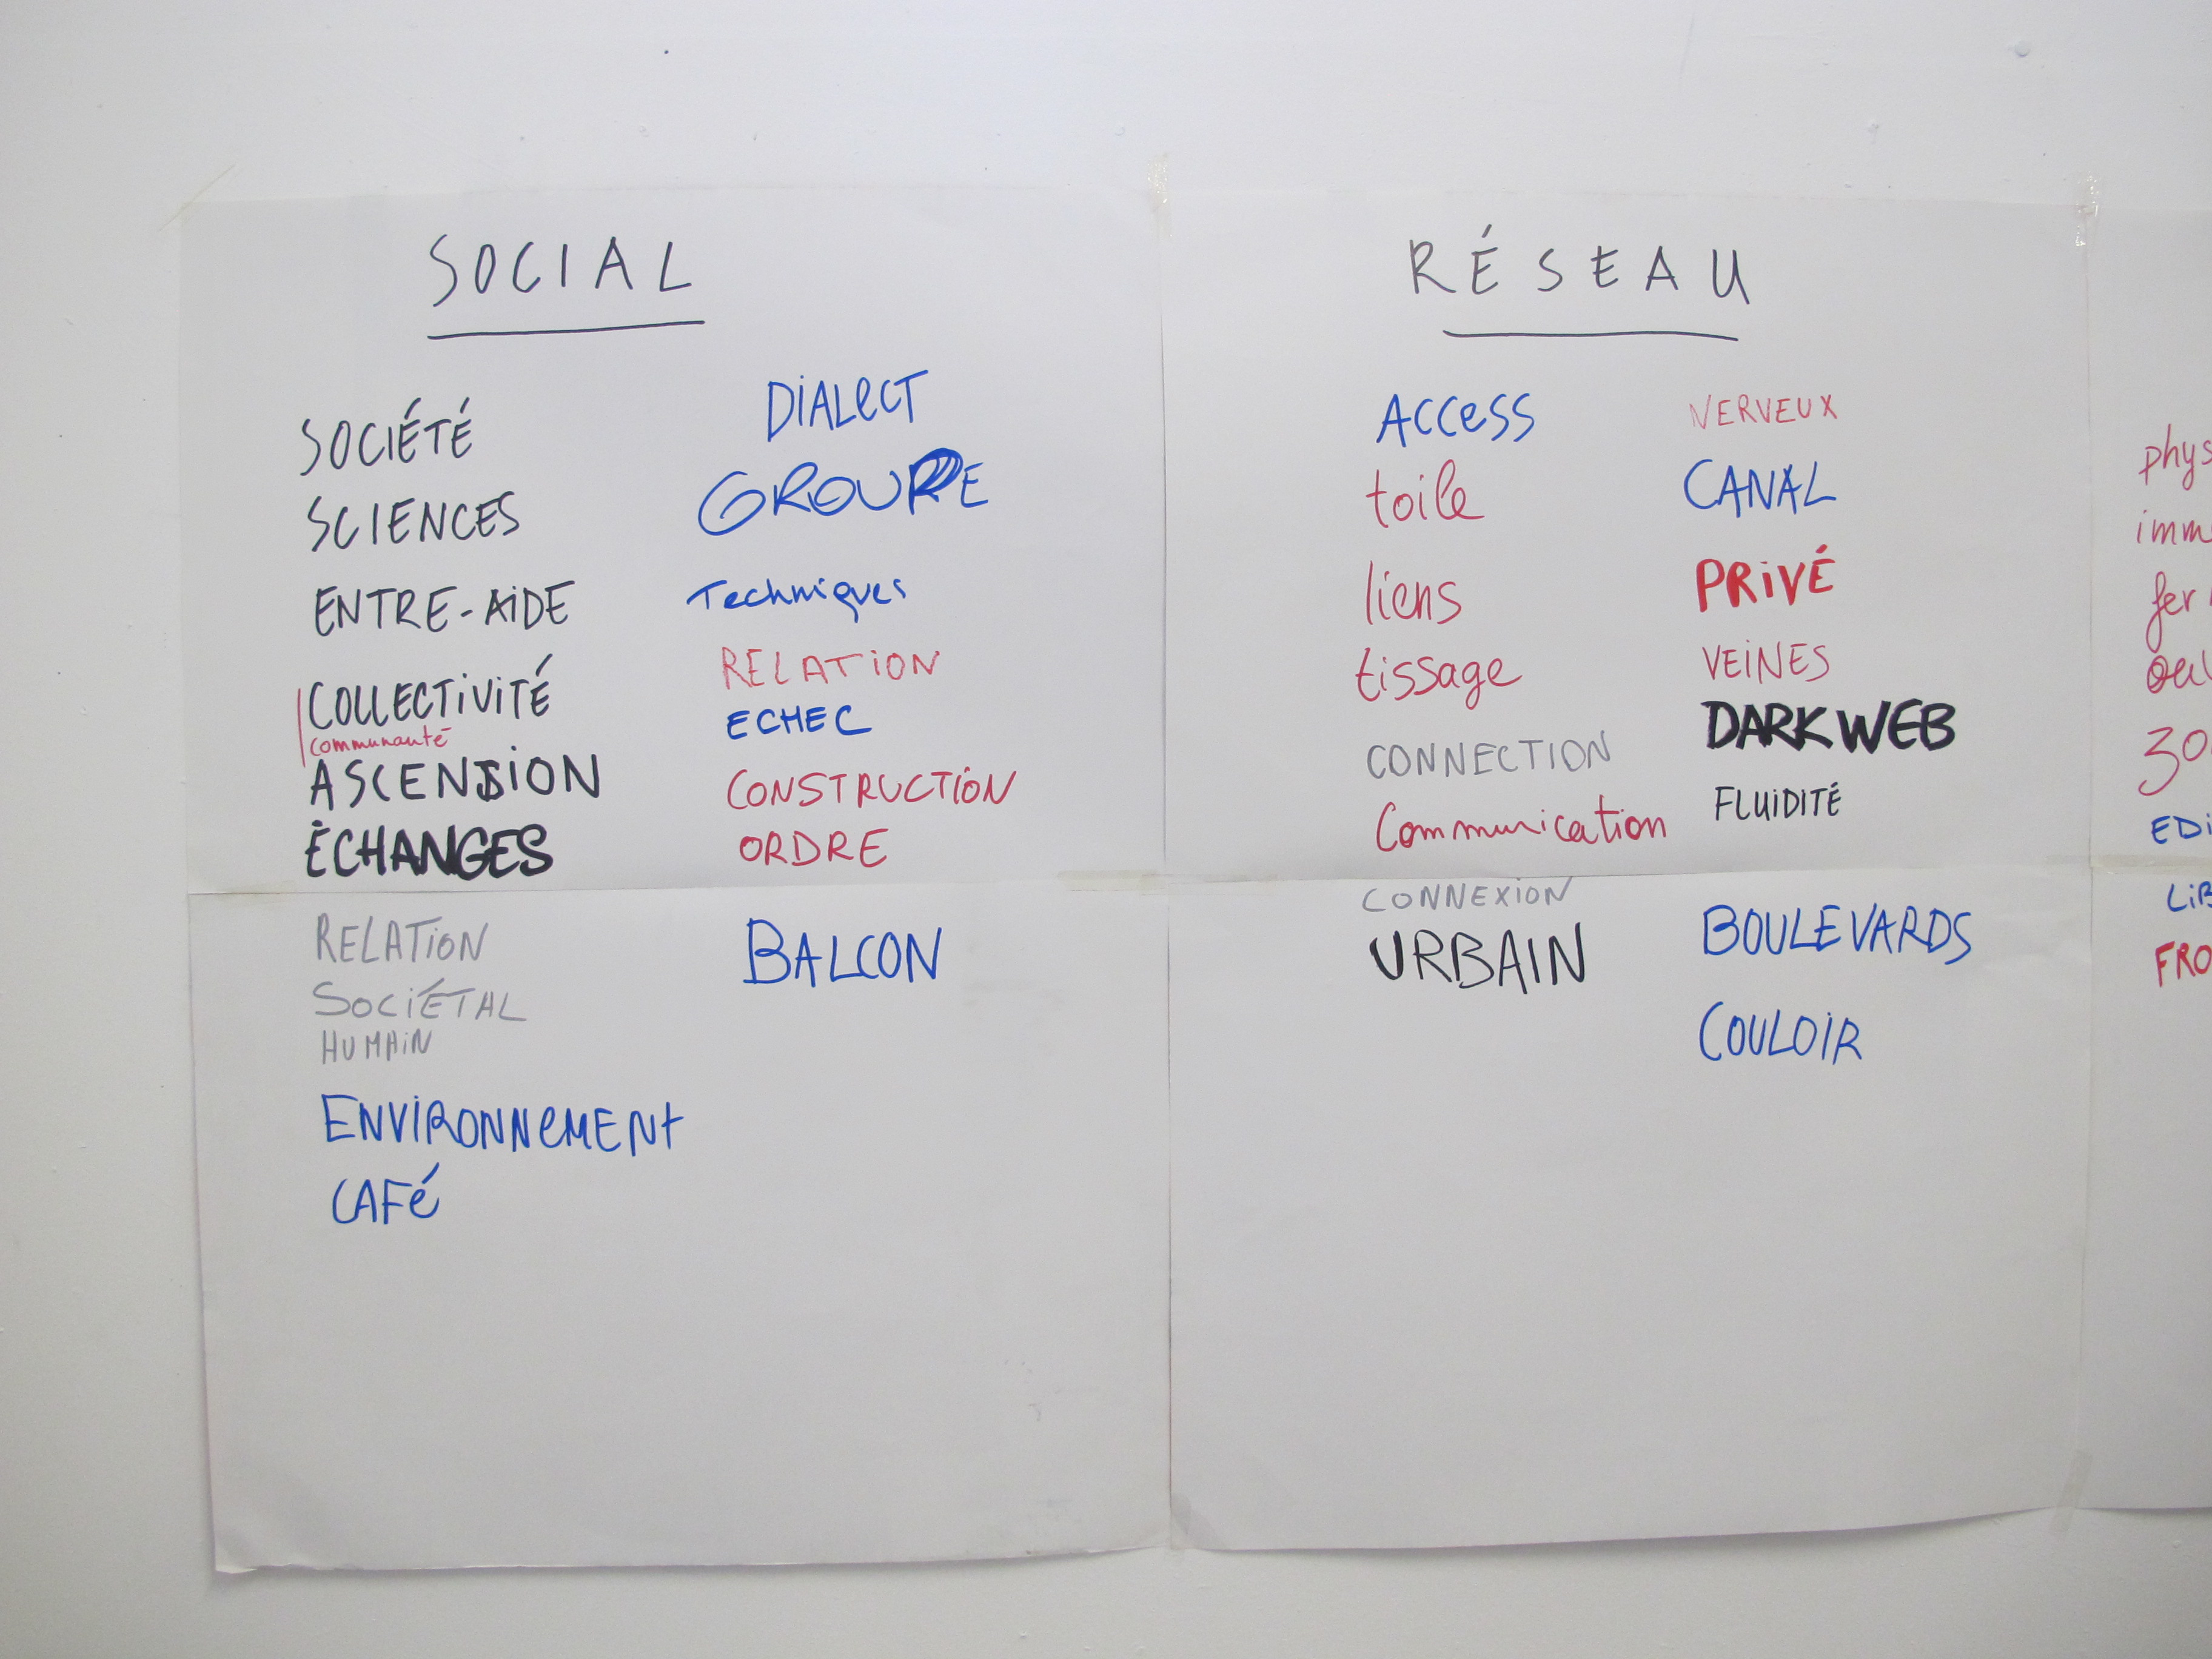 SOCIAL
SOCIÉTÉ
SCIENCES
ENTRE-AIDE
COLLECTIVITÉ
communauté
ASCENSION
ÉCHANGES
RELATION
SOCIÉTAL
HUMAIN
ENVIRONNEMENT
CAFÉ
DIALECT
GROUPE
Techniques
RELATION
ECHEC
CONSTRUCTION
ORDRE
BALCON
RÉSEAU
Access
toile
liens
tissage
CONNECTION
Communication
CONNEXION
URBAIN
NERVEUX
CANAL
PRIVÉ
VEINES
DARK WEB
FLUIDITÉ
BOULEVARDS
COULOIR
phys
imm
fer
EDI
LIB
FRO